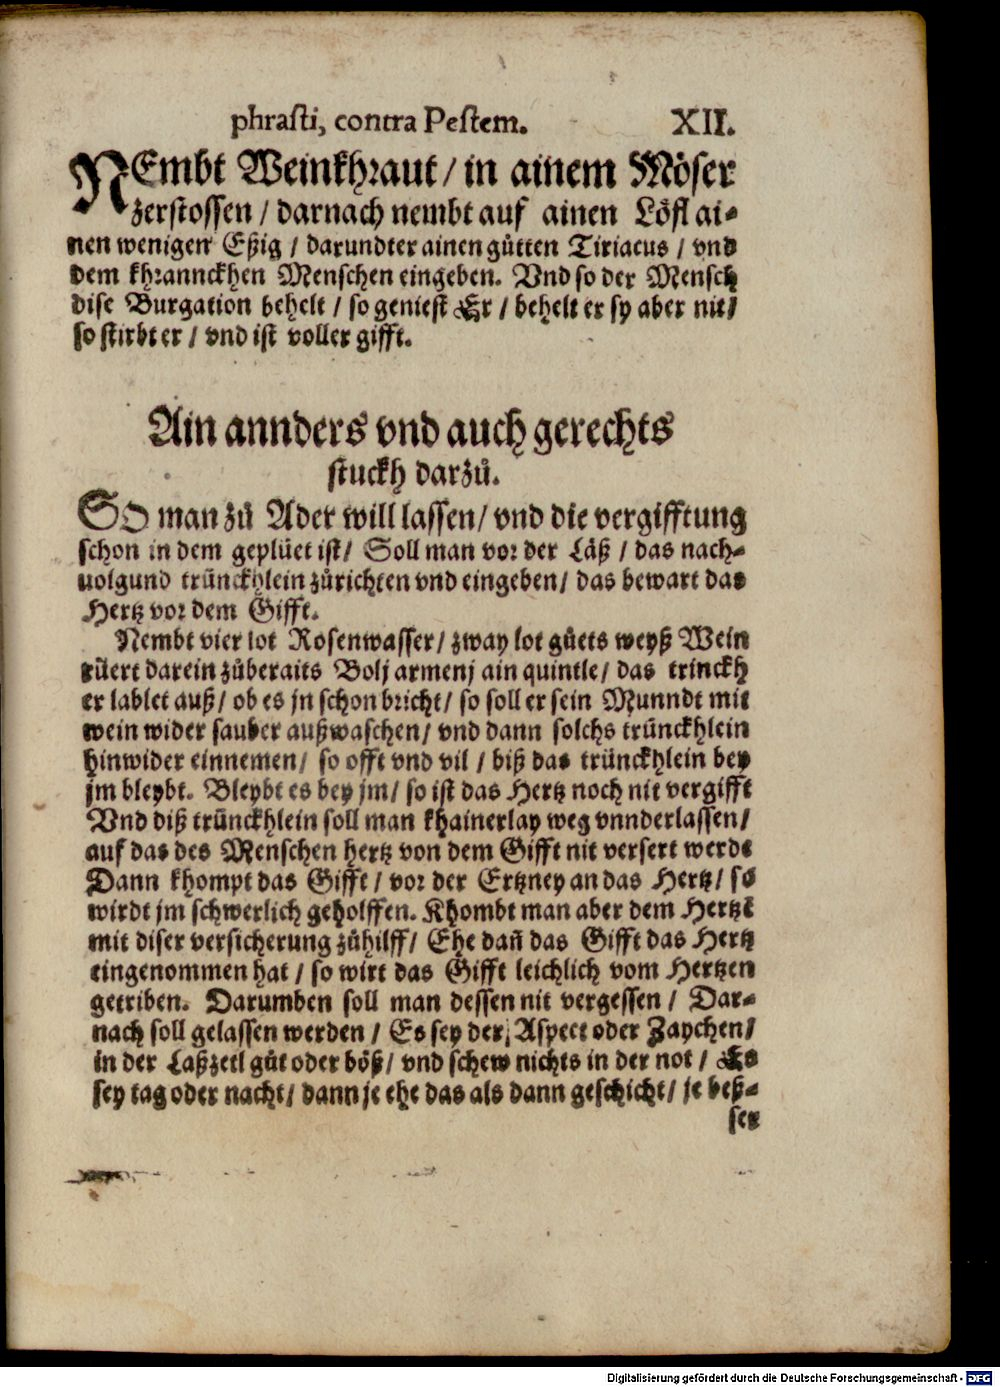 phrasti, contra Pestem. XII.
NEmbt Weinkhraut / in ainem Möser
zerstossen / darnach nembt auf ainen Löfl ai-
nen wenigen Eßig / darundter ainen gůtten Tiriacus / vnd
dem khrannckhen Menschen eingeben. Vnd so der Mensch
dise Burgation behelt / so geniest Er / behelt er sy aber nit /
so stirbt er / vnd ist voller gifft.
Ain annders vnd auch gerechts
stuckh darzů.
SO man zů Ader will lassen / vnd die vergifftung
schon in dem geplüet ist / Soll man vor der Läß / das nach-
uolgund trünckhlein zůrichten vnd eingeben / das bewart das
Hertz vor dem Gifft.
Nembt vier lot Rosenwasser / zway lot gůets weyß Wein
rüert darein zůberaits Bolj armenj ain quintle / das trinckh
er lablet auß / ob es jn schon bricht / so soll er sein Munndt mit
wein wider sauber außwaschen / vnd dann solchs trünckhlein
hinwider einnemen / so offt vnd vil / biß das trünckhlein bey
jm bleybt. Bleybt es bey jm / so ist das Hertz noch nit vergifft
Vnd diß trünckhlein soll man khainerlay weg vnnderlassen /
auf das des Menschen hertz von dem Gifft nit versert werde
Dann khompt das Gifft / vor der Ertzney an das Hertz / so
wirdt jm schwerlich geholffen. Khombt man aber dem Hertzē
mit diser versicherung zůhilff / Ehe dañ das Gifft das Hertz
eingenommen hat / so wirt das Gifft leichlich vom Hertzen
getriben. Darumben soll man dessen nit vergessen / Dar-
nach soll gelassen werden / Es sey der Aspect oder Zaychen /
in der Laßzetl gůt oder böß / vnd schew nichts in der not / Es
sey tag oder nacht / dann je ehe das als dann geschicht / je beß-
ser
Digitalisierung gefördert durch die Deutsche Forschungsgemeinschaft - DFG